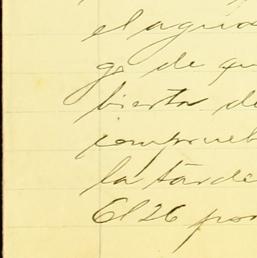 el agua
go de qu
bierta de
comprueb
la tarde
El 26 por